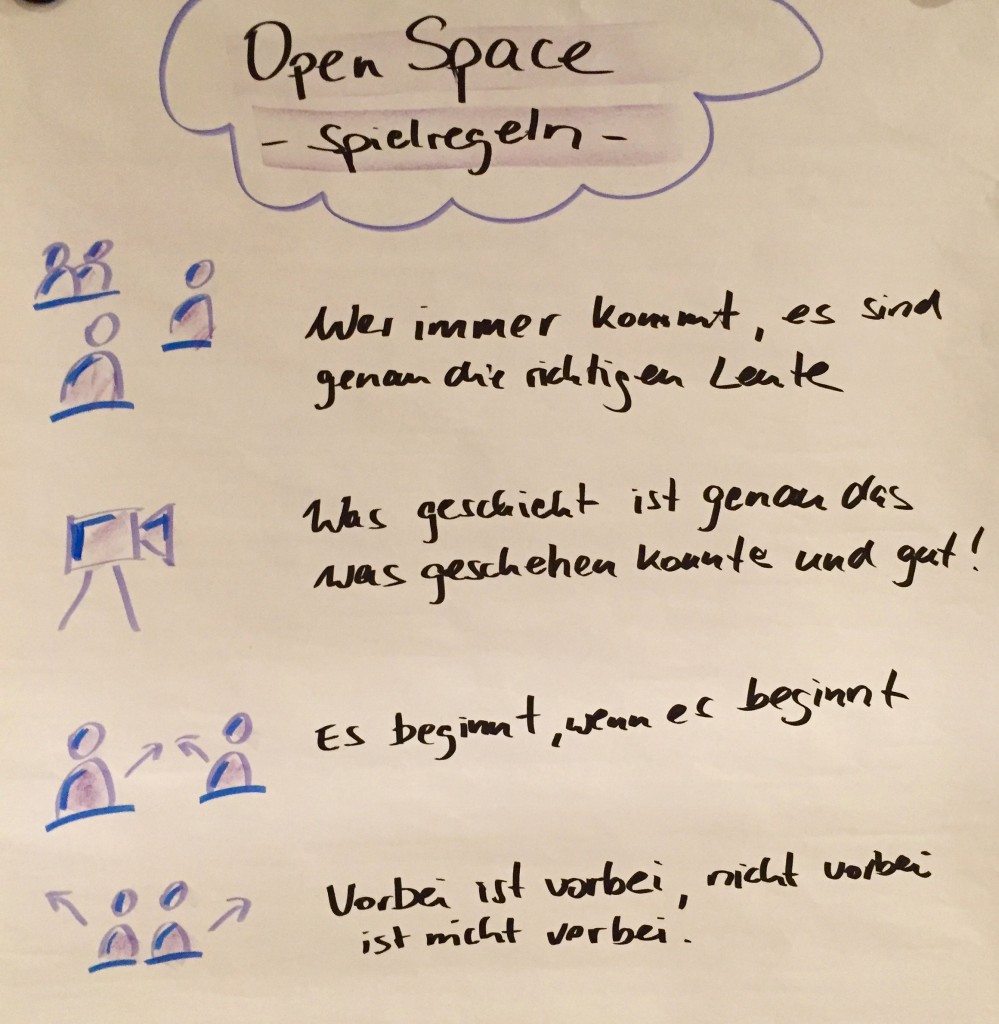 Open Space
- Spielregeln -
Wer immer kommt, es sind
genau die richtigen Leute
Was geschieht ist genau das
was geschehen konnte und gut!
Es beginnt, wenn es beginnt
Vorbei ist vorbei, nicht vorbei
ist nicht vorbei.